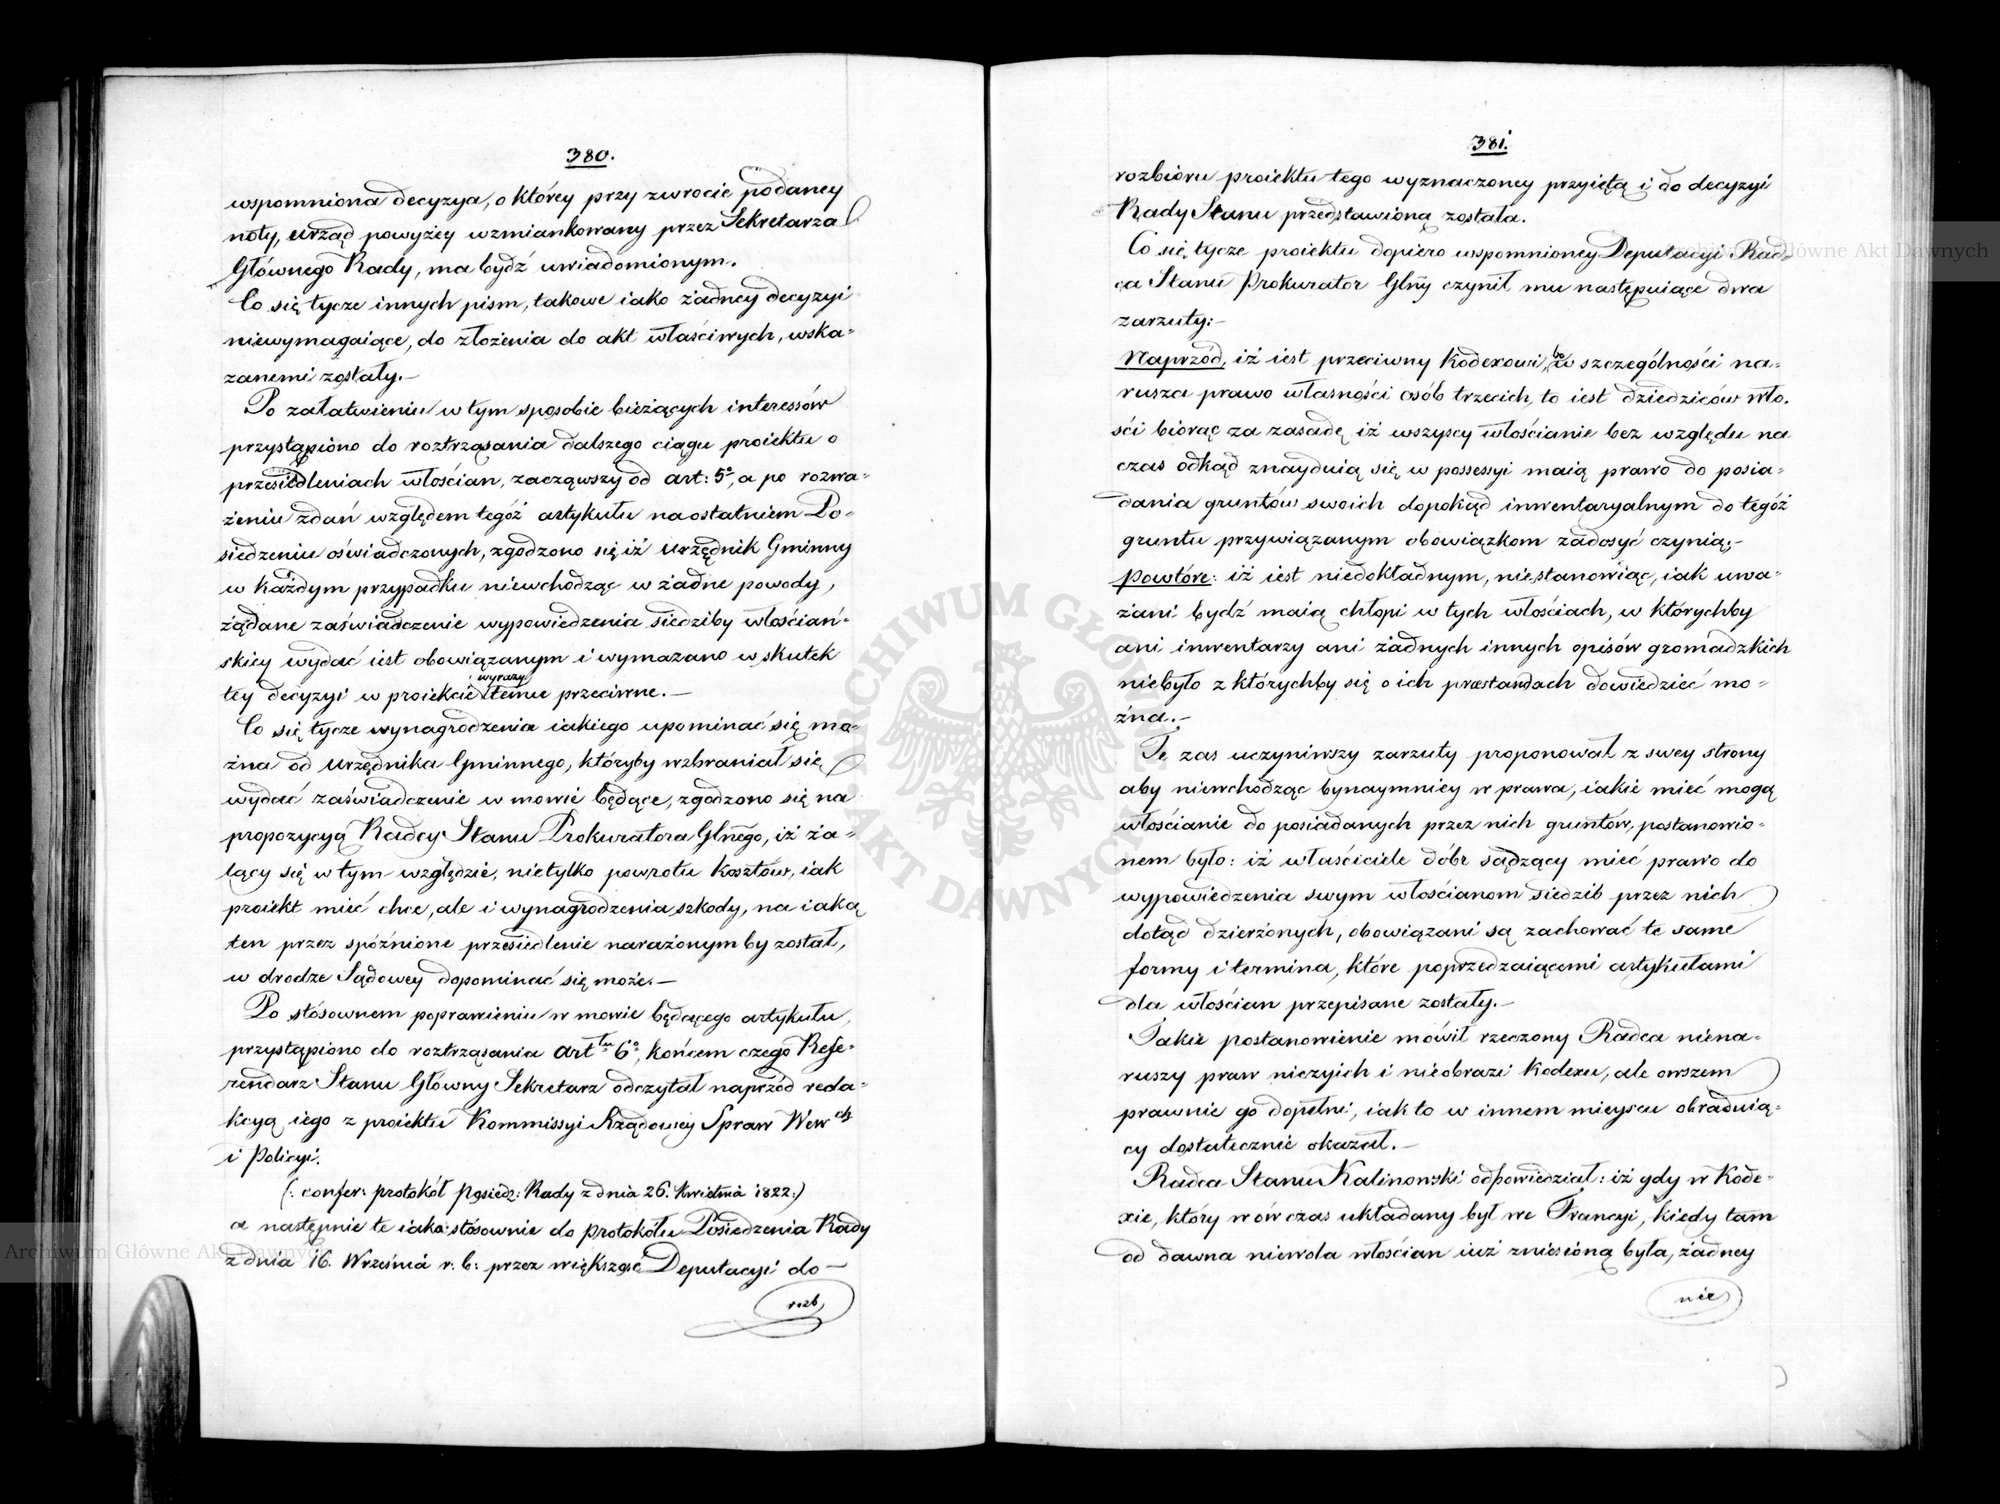 380.
wspomniona decyzya, o którey przy zwrocie podaney
noty, Urząd powyżey wzmiankowany przez Sekretarza
Głównego Rady, ma bydź uwiadomionym.
Co się tycze innych pism, takowe iako żadney decyzyi
niewymagaiące, do złożenia do akt właściwych, wska-
zanemi zostały.—
Po załatwieniu w tym sposobie bieżących interessów
przystąpiono do roztrząsania dalszego ciągu proiektu o
przesiedleniach włościan, zacząwszy od art: 5º, a po rozwa-
żeniu zdań względem tegóż artykułu na ostatniem Po-
siedzeniu oświadczonych, zgodzono się iż Urzędnik Gminny
w każdym przypadku niewchodząc w żadne powody,
żądane zaświadczenie wypowiedzenia siedziby włościań-
skiey wydać iest obowiązanym i wymazano w skutek
tey decyzyi w proiekcie wyrazy temu przeciwne.—
Co się tycze wynagrodzenia iakiego upominać się mo-
żna od Urzędnika Gminnego, któryby wzbraniał się
wydać zaświadczenie w mowie będące, zgodzono się na
propozycyą Radcy Stanu Prokuratora Glnego, iż ża-
lący się w tym względzie, nietylko powrotu kosztów, iak
proiekt mieć chce, ale i wynagrodzenia szkody, na iaką
ten przez spóźnione przesiedlenie narażonym by został,
w drodze Sądowey dopominać się może.—
Po stósownem poprawieniu w mowie będącego artykułu,
przystąpiono do roztrząsania arttu 6º, końcem czego Refe-
rendarz Stanu Główny Sekretarz odczytał naprzód reda-
kcyą iego z proiektu Kommissyi Rządowey Spraw Wewch
i Policyi.
(: confer: protokół Posiedz: Rady z dnia 26. Kwietnia 1822:)
a następnie te iako stósownie do protokółu Posiedzenia Rady
z dnia 16. Września r: b: przez większość Deputacyi do—
rozb
381.
rozbioru proiektu tego wyznaczoney przyiętą i do decyzyi
Rady Stanu przedstawioną została.
Co się tycze proiektu dopiero wspomnioney Deputacyi Rad-
ca Stanu Prokurator Glny czynił mu następuiące dwa
zarzuty:—
Naprzód, iż iest przeciwny Kodexowi, bo w szczególności na-
rusza prawo własności osób trzecich, to iest dziedziców wło-
ści biorąc za zasadę iż wszyscy włościanie bez względu na
czas odkąd znayduią się w possessyi maią prawo do posia-
dania gruntów swoich dopokąd inwentaryalnym do tegóż
gruntu przywiązanym obowiązkom zadosyć czynią;—
Powtóre: iż iest niedokładnym, niestanowiąc, iak uwa-
żani bydź maią chłopi w tych włościach, w którychby
ani inwentarzy ani żadnych innych opisów gromadzkich
niebyło z którychby się o ich præstandach dowiedzieć mo-
żna.—
Te zas uczyniwszy zarzuty proponował z swey strony
aby niewchodząc bynaymniey w prawa, iakie mieć mogą
włościanie do posiadanych przez nich gruntów, postanowio-
nem było: iż właściciele dóbr sądzący mieć prawo do
wypowiedzenia swym włościanom siedzib przez nich
dotąd dzierżonych, obowiązani są zachować te same
formy i termina, które poprzedzaiącemi artykułami
dla włościan przepisane zostały.—
Takie postanowienie mówił rzeczony Radca niena-
ruszy praw niczyich i nieobrazi Kodexu, ale owszem
prawnie go dopełni, iak to w innem mieyscu obraduią-
cy dostatecznie okazał.—
Radca Stanu Kalinowski odpowiedział: iż gdy w Kode-
xie, który wówczas układany był we Francyi, kiedy tam
od dawna niewola włościan iuż zniesioną była, żadney
nie
Archiwum Główne Akt Dawnych
Archiwum Główne Akt Dawnych
ARCHIWUM GŁÓWNE AKT DAWNYCH